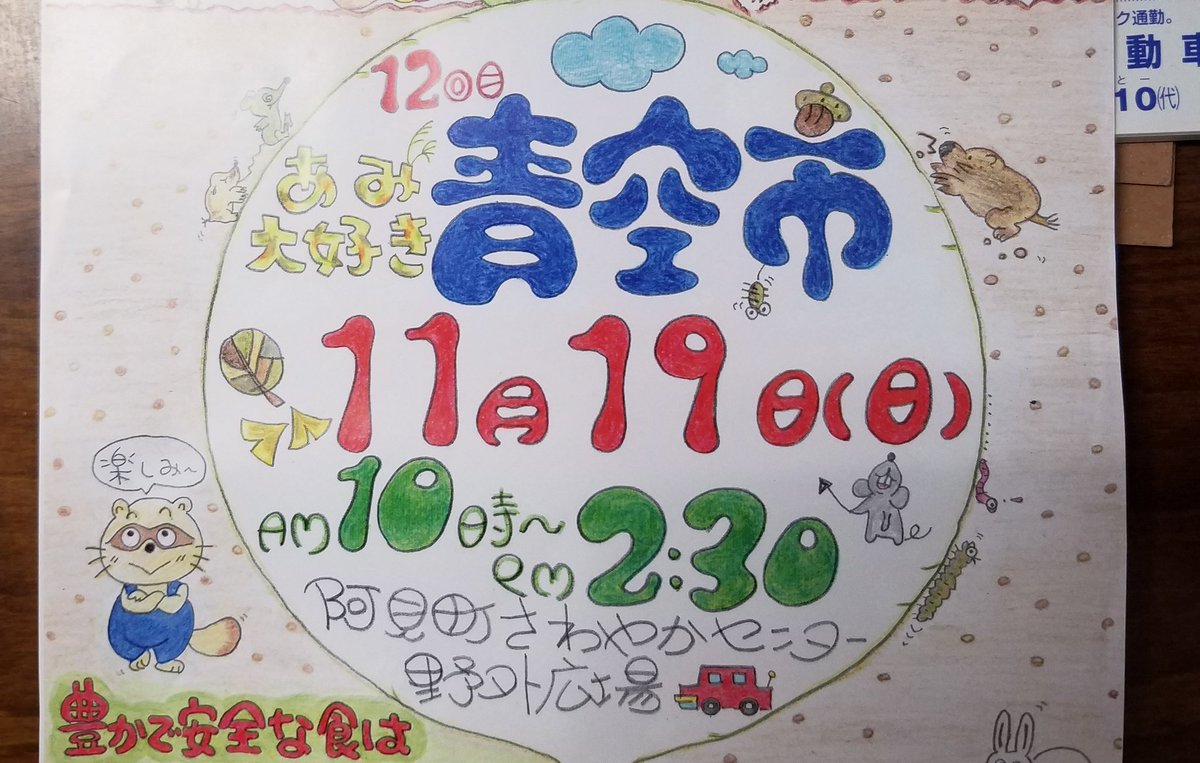 12回目
あみ
大好き
青空市
11月19日(日)
AM10時〜
PM2:30
阿見町さわやかセンター
野外広場
楽しみ〜
豊かで安全な食は
ク通勤。
動車
10(代)